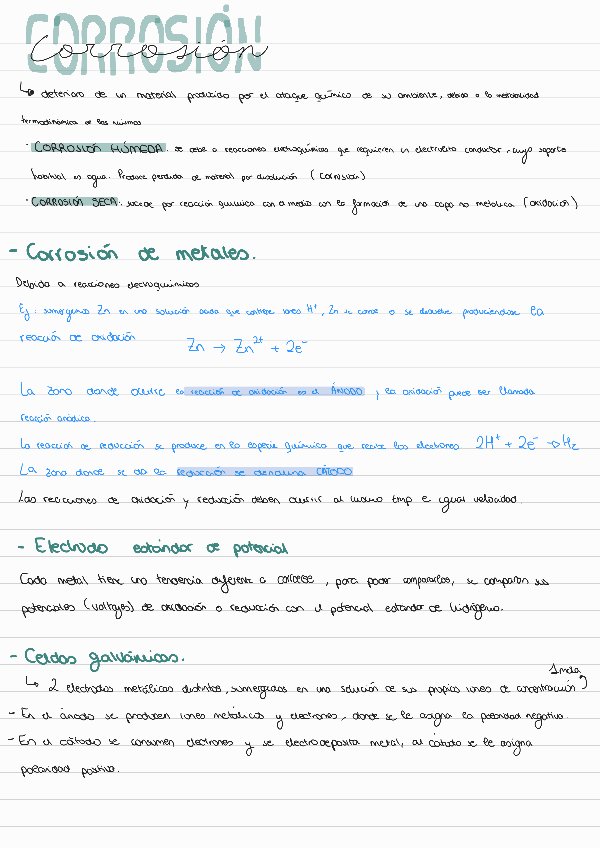 CORROSIÓN
Corrosión
↳ deterioro de un material producido por el ataque químico de su ambiente, debido a la inestabilidad
termodinámica de los mismos
· CORROSIÓN HÚMEDA: se debe a reacciones electroquímicas que requieren un electrolito conductor, cuyo soporte
habitual es agua. Produce perdida de material por disolución (corrosión)
· CORROSIÓN SECA: sucede por reacción química con el medio con la formación de una capa no metálica (oxidación)
- Corrosión de metales.
Debido a reacciones electroquímicas
Ej: sumergimos Zn en una solución ácida que contiene iones H⁺, Zn se corroe o se disuelve produciéndose la
reacción de oxidación Zn → Zn²⁺ + 2e⁻
La zona donde ocurre la reacción de oxidación es el ÁNODO y la oxidación puede ser llamada
reacción anódica.
La reacción de reducción se produce en la especie química que recibe los electrones 2H⁺ + 2e⁻ → H₂
La zona donde se da la reducción se denomina CÁTODO
Las reacciones de oxidación y reducción deben ocurrir al mismo tmp e igual velocidad.
- Electrodo estándar de potencial
Cada metal tiene una tendencia diferente a corroerse, para poder compararlos, se comparan sus
potenciales (voltajes) de oxidación o reducción con el potencial estándar de hidrógeno.
- Celdas galvánicas.
1 molar
↳ 2 electrodos metálicos distintos, sumergidos en una solución de sus propios iones de concentración
- En el ánodo se producen iones metálicos y electrones, donde se le asigna la polaridad negativa.
- En el cátodo se consumen electrones y se electrodeposita metal, al cátodo se le asigna
polaridad positiva.